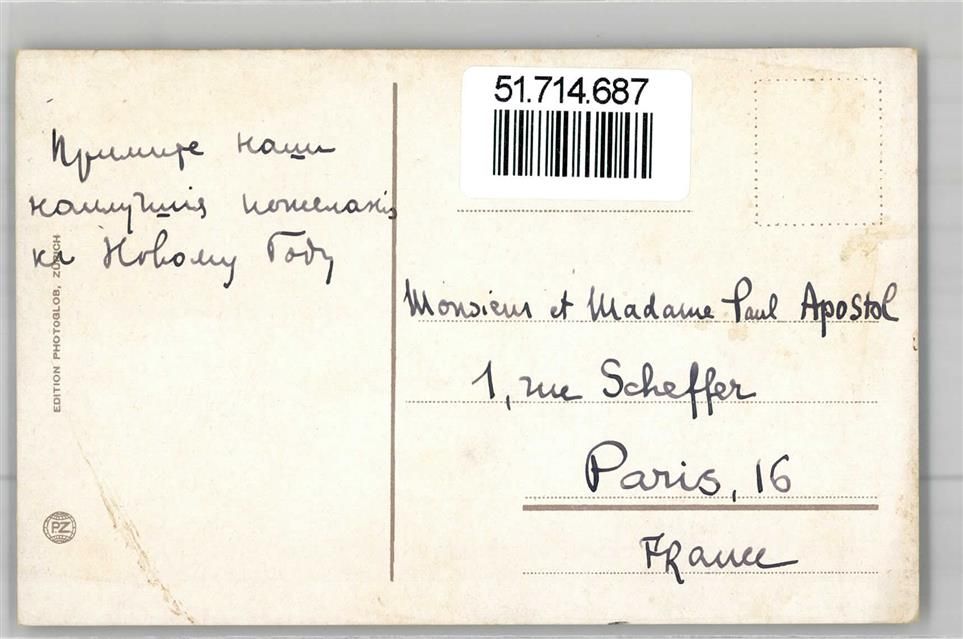 51.714.687
Примите наши
наилучшія пожеланія
къ Новому Году
EDITION PHOTOGLOB, ZÜRICH
PZ
Monsieur et Madame Paul Apostol
1, rue Scheffer
Paris, 16
France